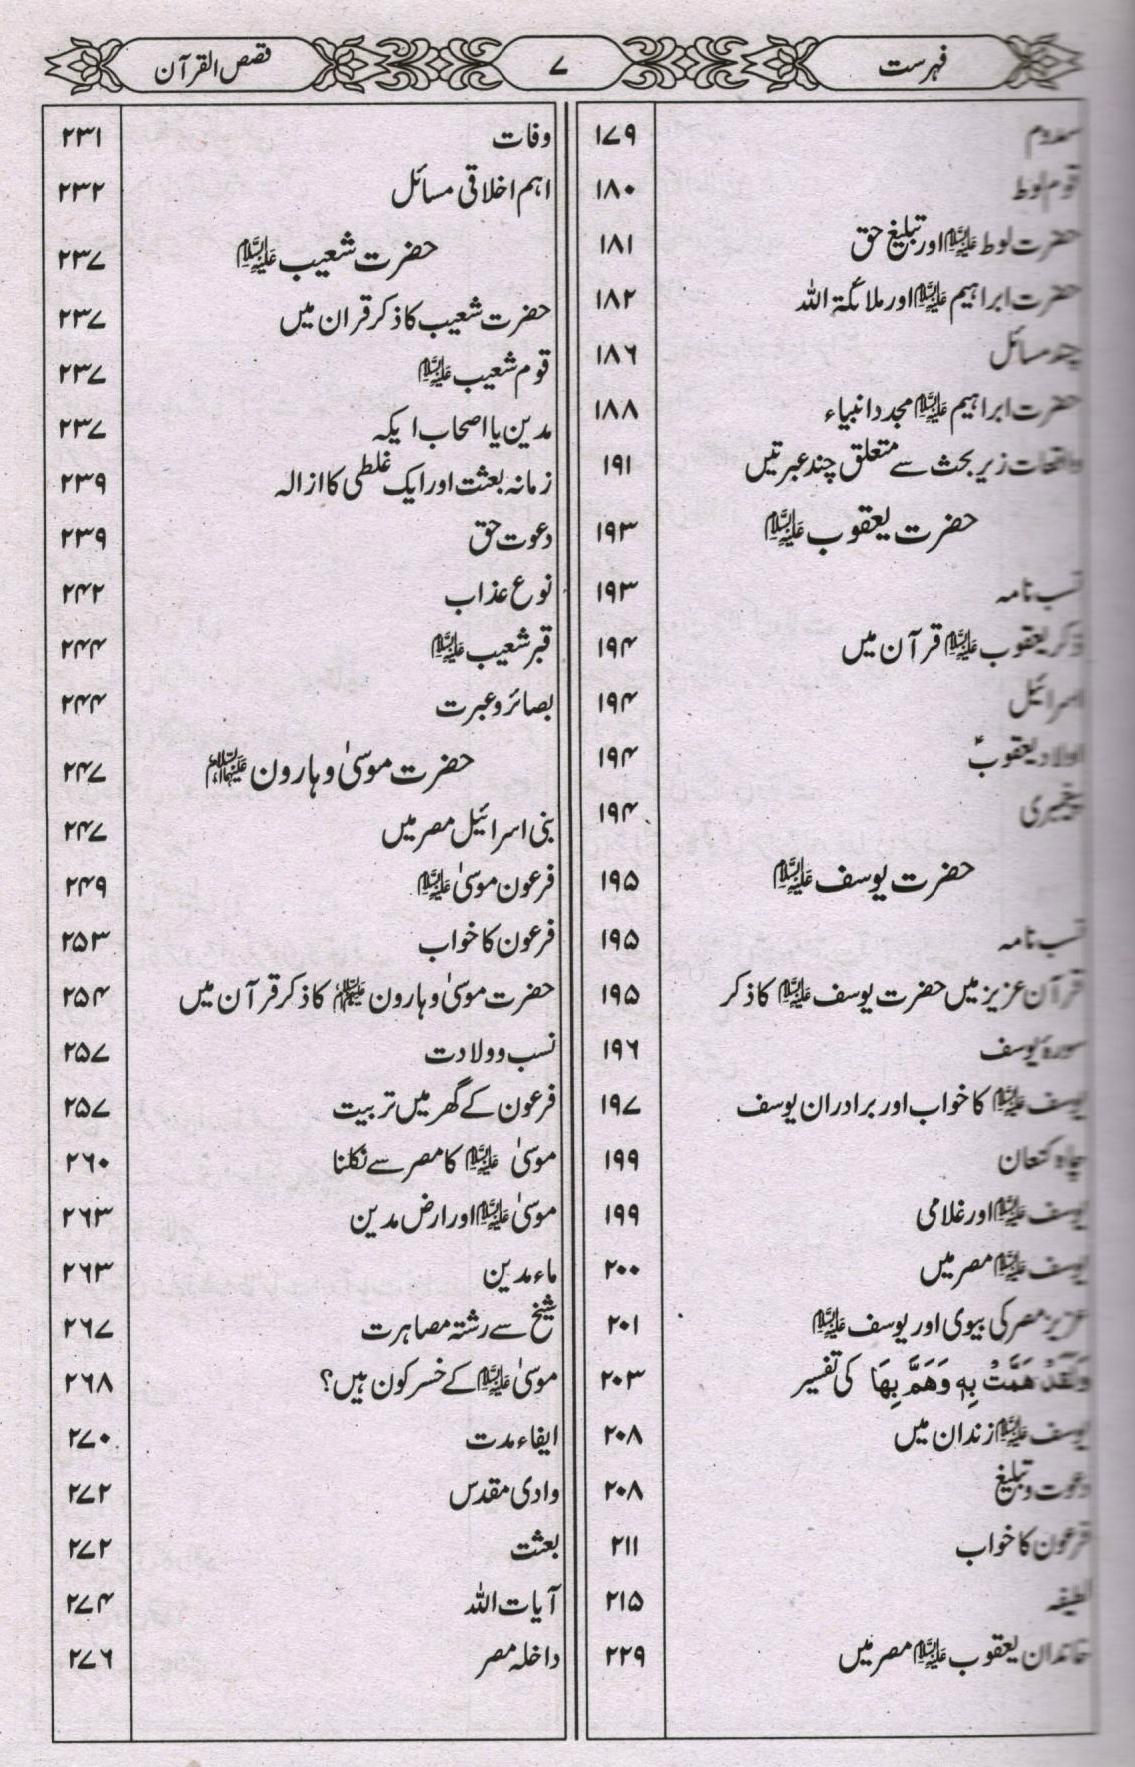 فہرست
۷
قصص القرآن
سدوم ۱۷۹
قوم لوط ۱۸۰
حضرت لوط علیہ السلام اور تبلیغ حق ۱۸۱
حضرت ابراہیم علیہ السلام اور ملائکۃ اللہ ۱۸۲
چند مسائل ۱۸۶
حضرت ابراہیم علیہ السلام مجدد انبیاء ۱۸۸
واقعات زیر بحث سے متعلق چند عبرتیں ۱۹۱
حضرت یعقوب علیہ السلام ۱۹۳
نسب نامہ ۱۹۳
ذکر یعقوب علیہ السلام قرآن میں ۱۹۴
اسرائیل ۱۹۴
اولاد یعقوبؑ ۱۹۴
پیغمبری ۱۹۴
حضرت یوسف علیہ السلام ۱۹۵
نسب نامہ ۱۹۵
قرآن عزیز میں حضرت یوسف علیہ السلام کا ذکر ۱۹۵
سورۂ یوسف ۱۹۶
یوسف علیہ السلام کا خواب اور برادران یوسف ۱۹۷
چاہ کنعان ۱۹۹
یوسف علیہ السلام اور غلامی ۱۹۹
یوسف علیہ السلام مصر میں ۲۰۰
عزیز مصر کی بیوی اور یوسف علیہ السلام ۲۰۱
وَلَقَدْ هَمَّتْ بِهٖ وَهَمَّ بِهَا کی تفسیر ۲۰۳
یوسف علیہ السلام زندان میں ۲۰۸
دعوت و تبلیغ ۲۰۸
فرعون کا خواب ۲۱۱
لطیفہ ۲۱۵
خاندان یعقوب علیہ السلام مصر میں ۲۲۹
وفات ۲۳۱
اہم اخلاقی مسائل ۲۳۲
حضرت شعیب علیہ السلام ۲۳۷
حضرت شعیب کا ذکر قران میں ۲۳۷
قوم شعیب علیہ السلام ۲۳۷
مدین یا اصحاب ایکہ ۲۳۷
زمانہ بعثت اور ایک غلطی کا ازالہ ۲۳۹
دعوت حق ۲۳۹
نوع عذاب ۲۴۲
قبر شعیب علیہ السلام ۲۴۴
بصائر و عبرت ۲۴۴
حضرت موسیٰ و ہارون علیہما السلام ۲۴۷
بنی اسرائیل مصر میں ۲۴۷
فرعون موسیٰ علیہ السلام ۲۴۹
فرعون کا خواب ۲۵۳
حضرت موسیٰ و ہارون علیہما السلام کا ذکر قرآن میں ۲۵۴
نسب و ولادت ۲۵۷
فرعون کے گھر میں تربیت ۲۵۷
موسیٰ علیہ السلام کا مصر سے نکلنا ۲۶۰
موسیٰ علیہ السلام اور ارض مدین ۲۶۳
ماء مدین ۲۶۳
شیخ سے رشتہ مصاہرت ۲۶۷
موسیٰ علیہ السلام کے خسر کون ہیں؟ ۲۶۸
ایفاء مدت ۲۷۰
وادی مقدس ۲۷۲
بعثت ۲۷۲
آیات اللہ ۲۷۴
داخلہ مصر ۲۷۶